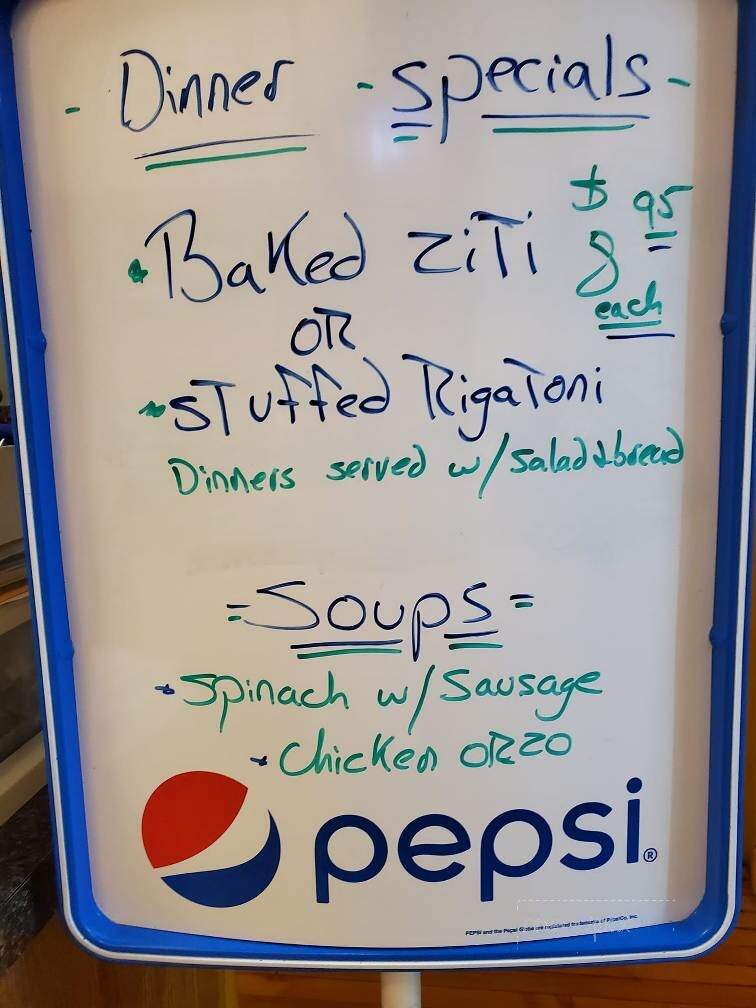 - Dinner - Specials -
• Baked ziti $8 95 each
OR
• Stuffed Rigatoni
Dinners served w/ salad & bread
= Soups =
• Spinach w/ Sausage
• Chicken ORZO
pepsi®
PEPSI and the Pepsi Globe are registered trademarks of PepsiCo, Inc.